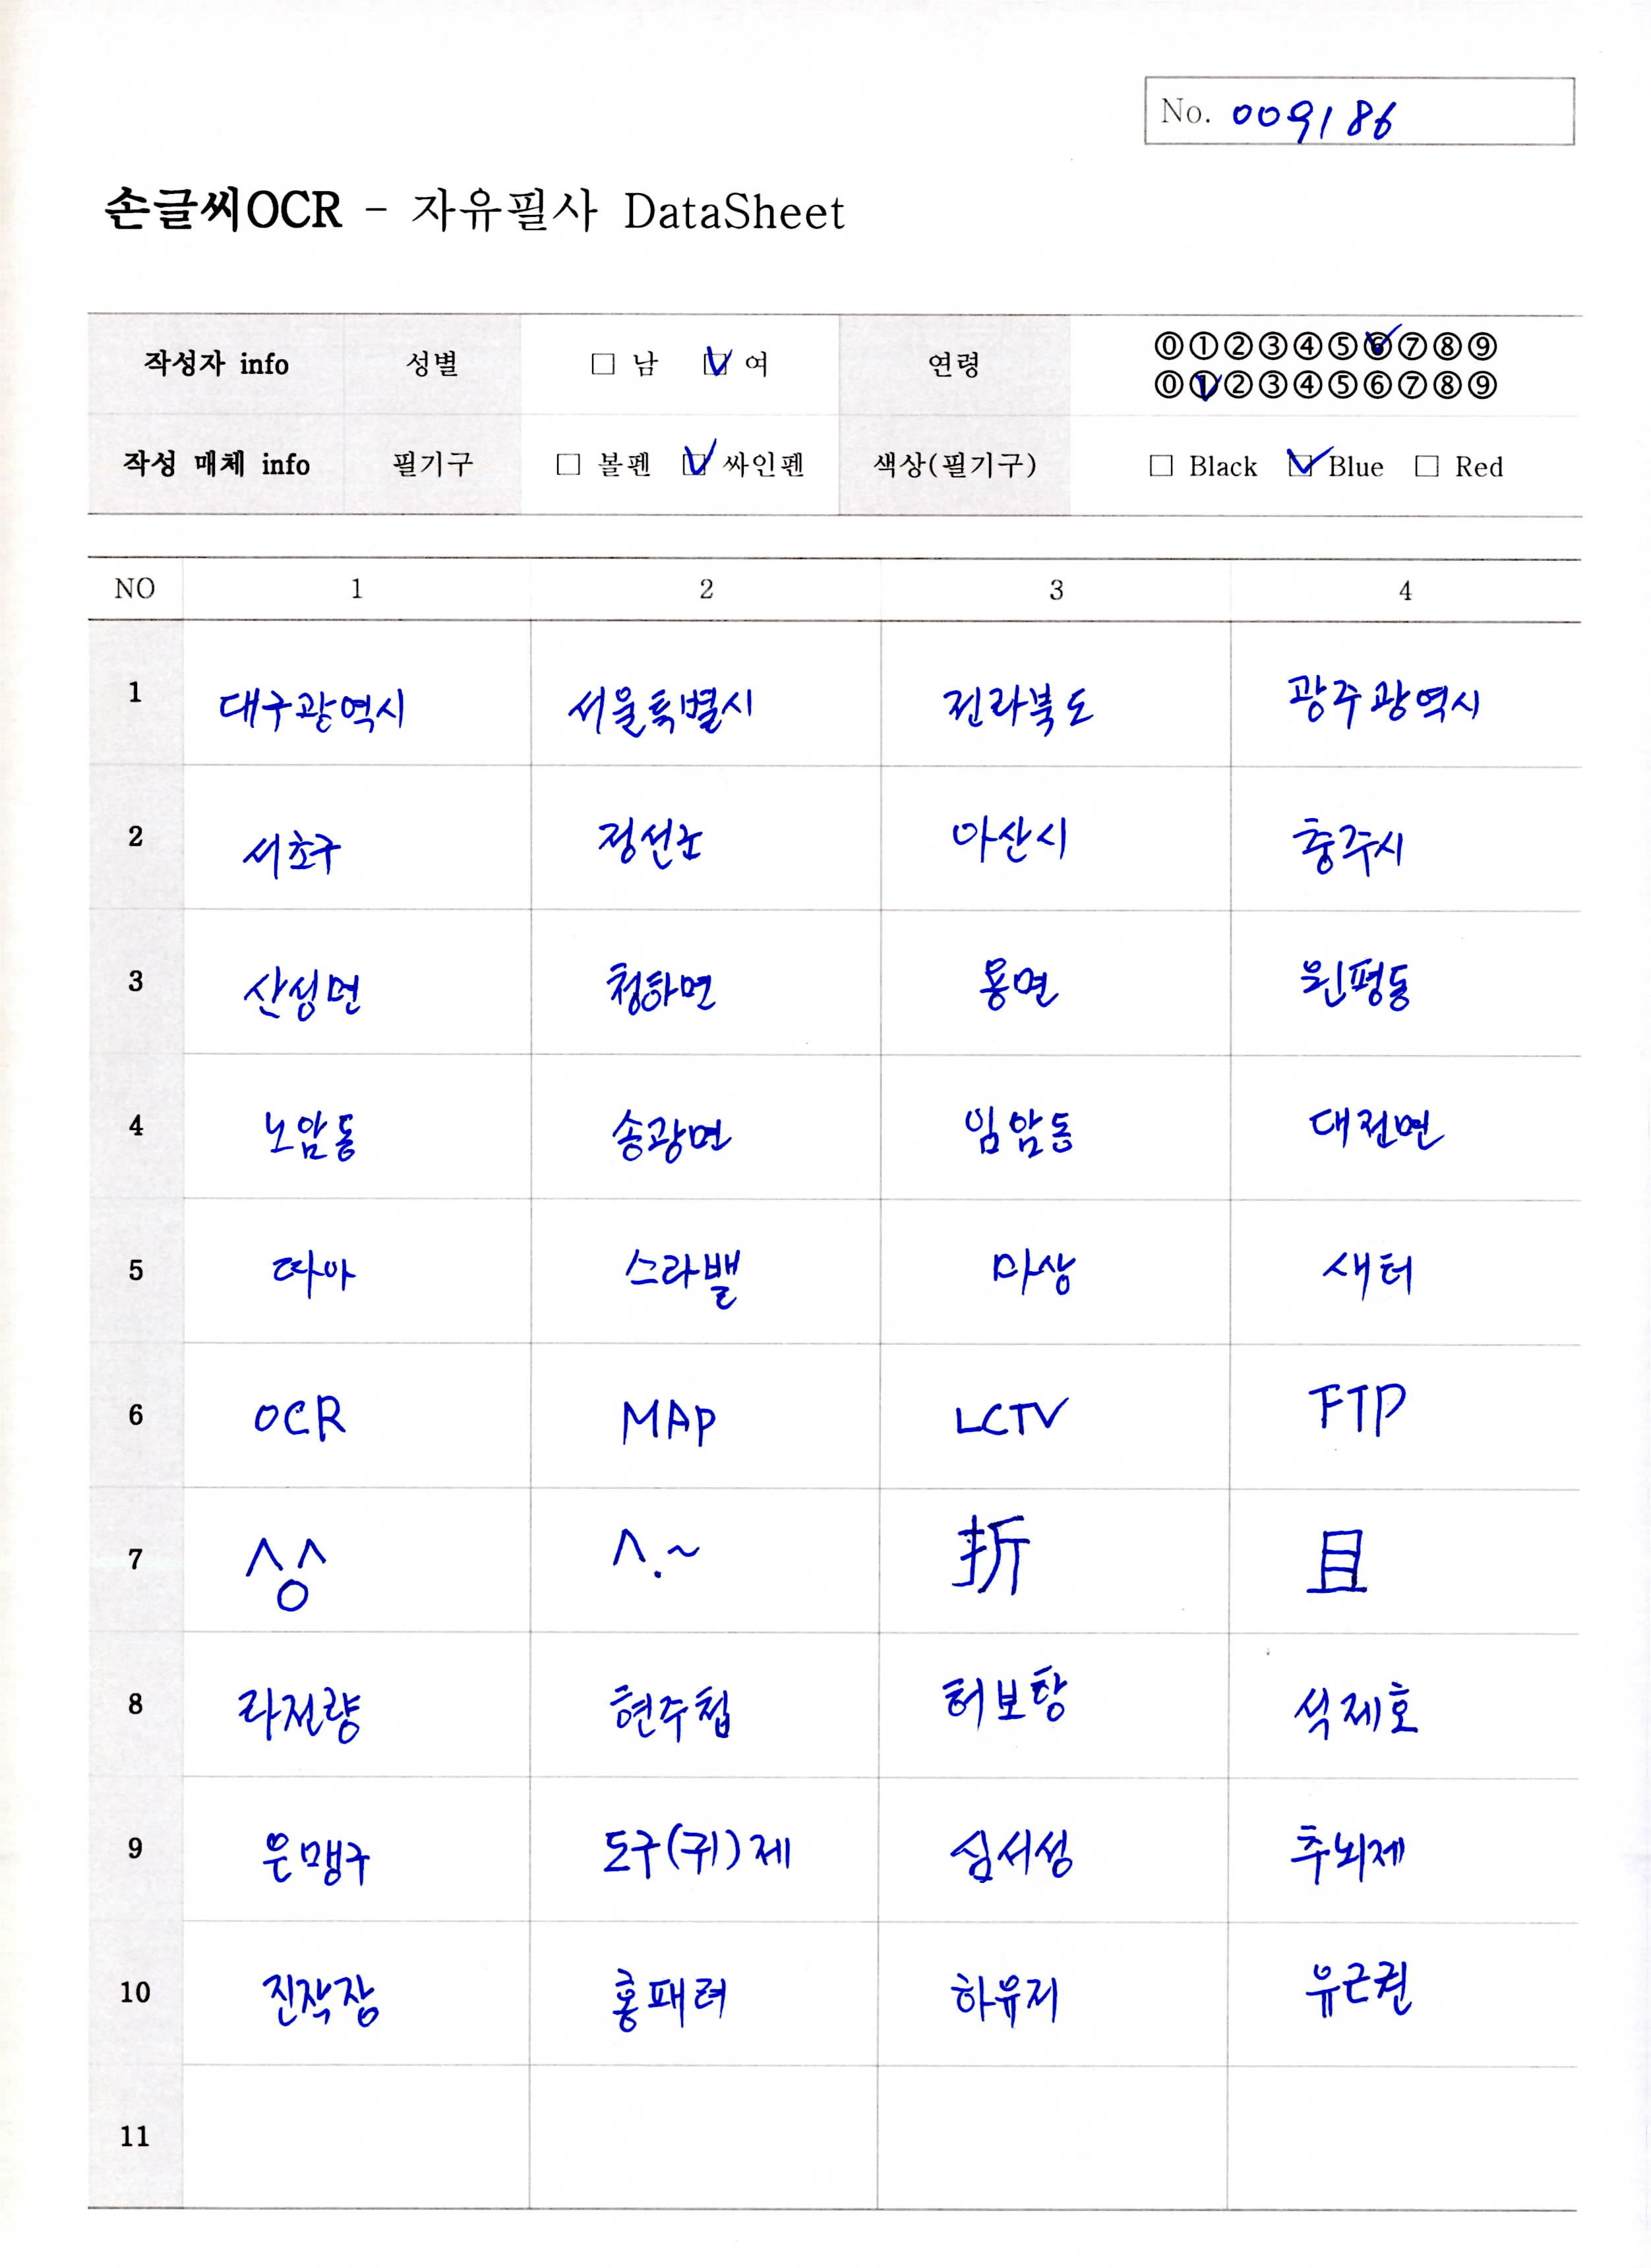 No. 009186
손글씨OCR - 자유필사 DataSheet
작성자 info 성별 □ 남 ☑ 여 연령 ⓪①②③④⑤⑥⑦⑧⑨
⓪①②③④⑤⑥⑦⑧⑨
작성 매체 info 필기구 □ 볼펜 ☑ 싸인펜 색상(필기구) □ Black ☑ Blue □ Red
NO 1 2 3 4
1 대구광역시 서울특별시 전라북도 광주광역시
2 서초구 정선군 아산시 충주시
3 산성면 청하면 용면 원평동
4 노암동 송광면 임암동 대전면
5 따아 스라밸 마상 새터
6 OCR MAP LCTV FTP
7 ^o^ ^.~ 折 且
8 라전량 현주첩 허보창 석제호
9 은맹구 도구(귀)제 심서성 추뇌제
10 진작장 홍패려 하유지 유근권
11